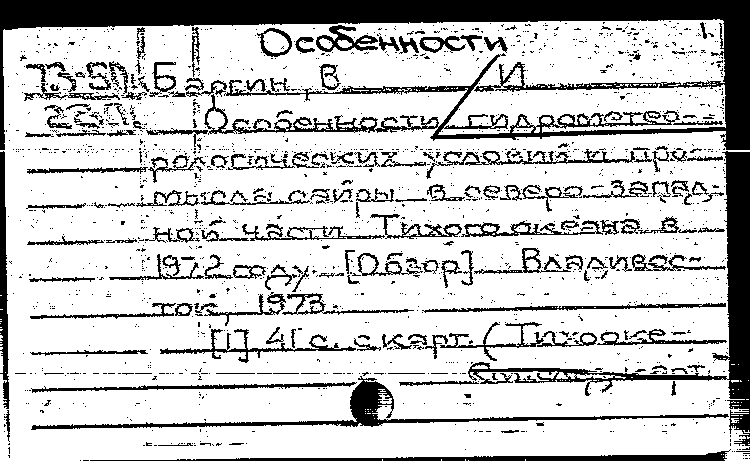 Особенности 1.
73-50. Баргин, В И
Особенности гидрометео-
рологических условий и про-
мысла сайры в северо-запад-
ной части Тихого океана в
1972 году. [Обзор] Владивос-
ток, 1973.
[1], 41 с. с карт. (Тихооке-
карт.